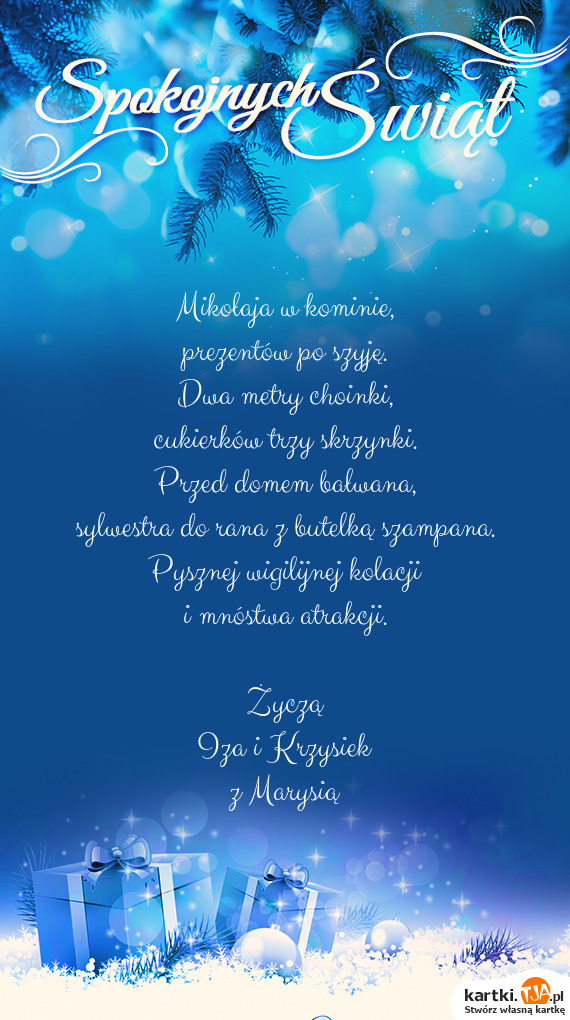 Spokojnych Świąt
Mikołaja w kominie,
prezentów po szyję.
Dwa metry choinki,
cukierków trzy skrzynki.
Przed domem bałwana,
sylwestra do rana z butelką szampana.
Pysznej wigilijnej kolacji
i mnóstwa atrakcji.
Życzą
Iza i Krzysiek
z Marysią
kartki.TJA.pl
Stwórz własną kartkę